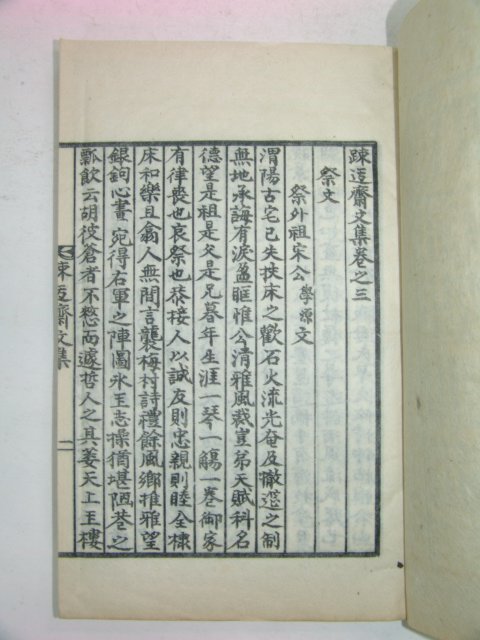 踈逕齋文集卷之三
祭文
祭外祖宋公 學源 文
渭陽古宅已失扶床之歡石火流光奄及撤筵之制
無地承誨有淚盈眶惟公清雅風裁豈弟天賦科名
德望是祖是父是兄暮年生涯一琴一觴一卷御家
有律喪也哀祭也恭接人以誠友則忠親則睦全棣
床和樂且翕人無間言襲梅村詩禮餘風鄉推雅望
銀鉤心畫宛得右軍之陣圖氷玉志操猶堪陋巷之
瓢飮云胡彼蒼者不憗而遽哲人之其萎天上玉樓
踈逕齋文集
一